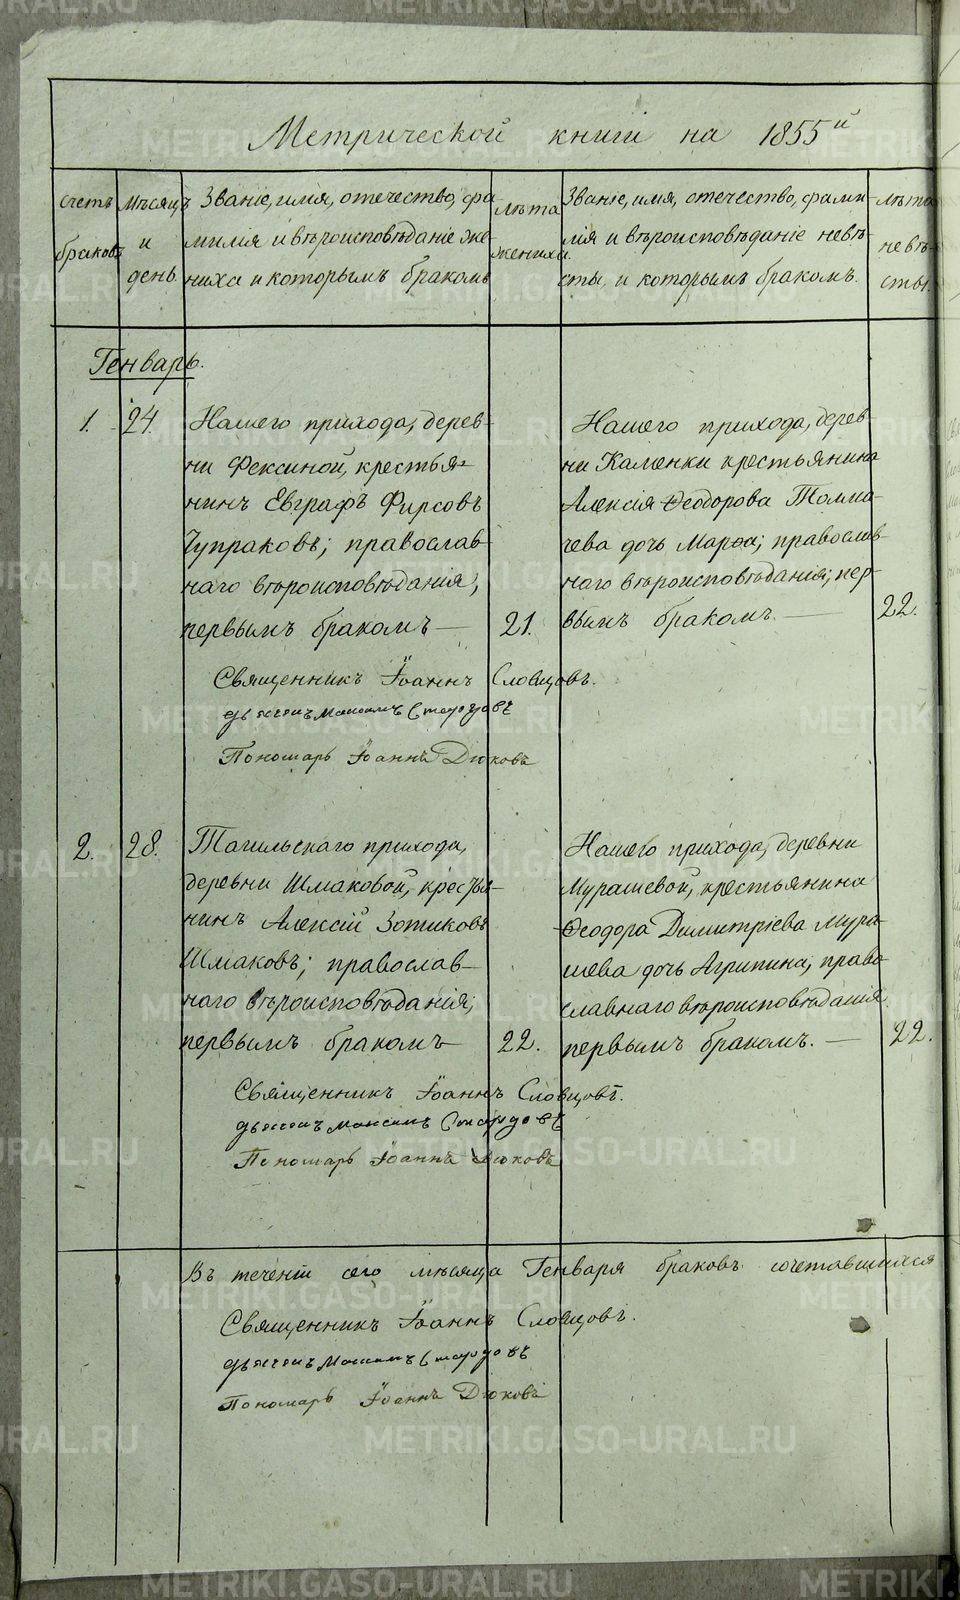 Метрической книги на 1855й
Счетъ
браковъ
Мѣсяцъ
и
день.
Званіе, имя, отечество, фа-
милія и вѣроисповѣданіе же-
ниха и которымъ бракомъ
Лѣта
жениха.
Званіе, имя, отечество, фами-
лія и вѣроисповѣданіе невѣ-
сты, и которымъ бракомъ.
Лѣта
невѣ-
сты.
Генварь.
1. 24.
Нашего прихода, дерев-
ни Фексиной, крестья-
нинъ Евграфъ Фирсовъ
Чупраковъ; православ-
наго вѣроисповѣданія;
первымъ бракомъ —
21.
Нашего прихода, дерев-
ни Каменки крестьянина
Алексія Ѳеодорова Толма-
чева дочь Марѳа; православ-
наго вѣроисповѣданія; пер-
вымъ бракомъ. —
22.
Священникъ Іоаннъ Словцовъ.
дьячекъ Максимъ Стародовъ
Пономарь Іоаннъ Дюковъ
2. 28.
Тагильскаго прихода,
деревни Шмаковой, крестья-
нинъ Алексій Зотиковъ
Шмаковъ; православ-
наго вѣроисповѣданія;
первымъ бракомъ —
22.
Нашего прихода, деревни
Мурашевой, крестьянина
Ѳеодора Димитріева Мура-
шева дочь Агрипина, право-
славнаго вѣроисповѣданія
первымъ бракомъ. —
22.
Священникъ Іоаннъ Словцовъ.
дьячекъ Максимъ Стародовъ
Пономарь Іоаннъ Дюковъ
Въ теченіи сего мѣсяца Генваря браковъ сочетавшихся
Священникъ Іоаннъ Словцовъ.
дьячекъ Максимъ Стародовъ
Пономарь Іоаннъ Дюковъ
METRIKI.GASO-URAL.RU